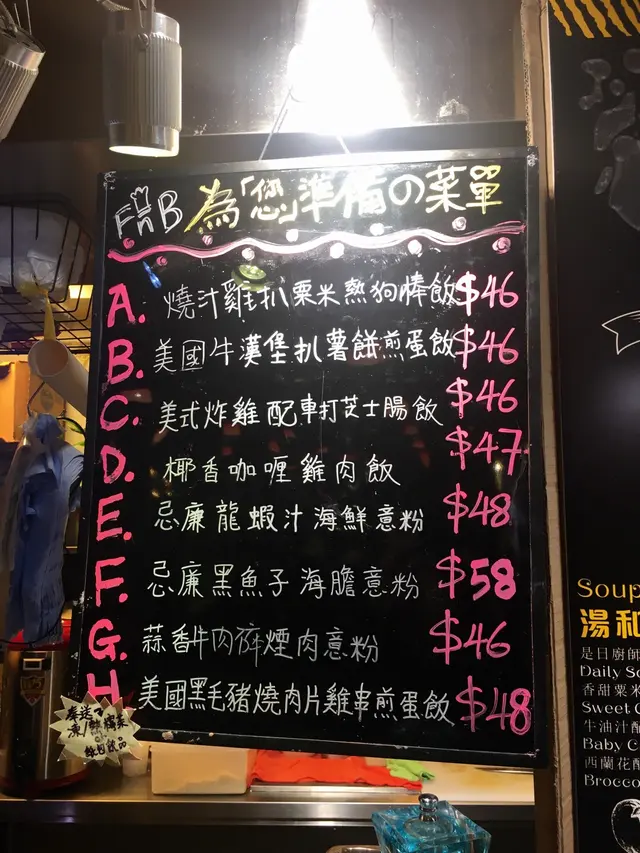 FnB 為「您」準備の菜單
A. 燒汁雞扒粟米熱狗棒飯 $46
B. 美國牛漢堡扒薯餅煎蛋飯 $46
C. 美式炸雞配車打芝士腸飯 $46
D. 椰香咖喱雞肉飯 $47
E. 忌廉龍蝦汁海鮮意粉 $48
F. 忌廉黑魚子海膽意粉 $58
G. 蒜香牛肉碎煙肉意粉 $46
H 美國黑毛豬燒肉片雞串煎蛋飯 $48
Soup
湯和
是日廚師
Daily So
香甜粟米
Sweet C
牛油汁配
Baby C
西蘭花配
Brocco